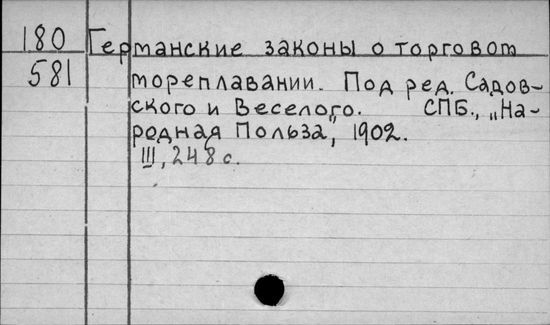 180 Германские законы о торговом
581 мореплавании. Под ред. Садов-
ского и Веселого. СПБ., „На-
родная Польза", 1902.
III, 248 с.